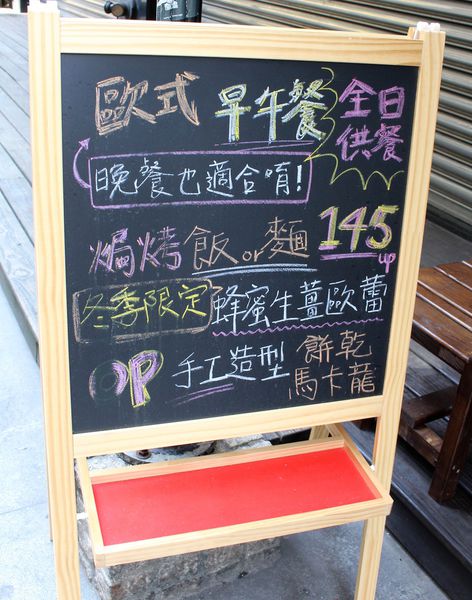 歐式 早午餐 全日供餐
晚餐也適合唷!
焗烤飯or麵 145up
冬季限定 蜂蜜生薑歐蕾
OP 手工造型 餅乾 馬卡龍